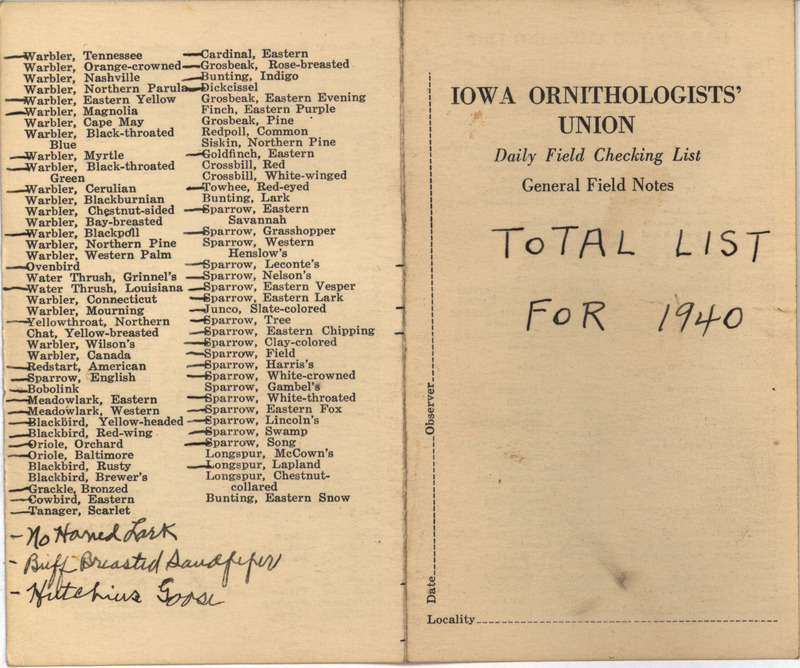 Warbler, Tennessee
Warbler, Orange-crowned
Warbler, Nashville
Warbler, Northern Parula
Warbler, Eastern Yellow
Warbler, Magnolia
Warbler, Cape May
Warbler, Black-throated
Blue
Warbler, Myrtle
Warbler, Black-throated
Green
Warbler, Cerulian
Warbler, Blackburnian
Warbler, Chestnut-sided
Warbler, Bay-breasted
Warbler, Blackpoll
Warbler, Northern Pine
Warbler, Western Palm
Ovenbird
Water Thrush, Grinnel's
Water Thrush, Louisiana
Warbler, Connecticut
Warbler, Mourning
Yellowthroat, Northern
Chat, Yellow-breasted
Warbler, Wilson's
Warbler, Canada
Redstart, American
Sparrow, English
Bobolink
Meadowlark, Eastern
Meadowlark, Western
Blackbird, Yellow-headed
Blackbird, Red-wing
Oriole, Orchard
Oriole, Baltimore
Blackbird, Rusty
Blackbird, Brewer's
Grackle, Bronzed
Cowbird, Eastern
Tanager, Scarlet
- No Horned Lark
- Buff Breasted Sandpiper
- Hutchins Goose
Cardinal, Eastern
Grosbeak, Rose-breasted
Bunting, Indigo
Dickcissel
Grosbeak, Eastern Evening
Finch, Eastern Purple
Grosbeak, Pine
Redpoll, Common
Siskin, Northern Pine
Goldfinch, Eastern
Crossbill, Red
Crossbill, White-winged
Towhee, Red-eyed
Bunting, Lark
Sparrow, Eastern
Savannah
Sparrow, Grasshopper
Sparrow, Western
Henslow's
Sparrow, Leconte's
Sparrow, Nelson's
Sparrow, Eastern Vesper
Sparrow, Eastern Lark
Junco, Slate-colored
Sparrow, Tree
Sparrow, Eastern Chipping
Sparrow, Clay-colored
Sparrow, Field
Sparrow, Harris's
Sparrow, White-crowned
Sparrow, Gambel's
Sparrow, White-throated
Sparrow, Eastern Fox
Sparrow, Lincoln's
Sparrow, Swamp
Sparrow, Song
Longspur, McCown's
Longspur, Lapland
Longspur, Chestnut-
collared
Bunting, Eastern Snow
IOWA ORNITHOLOGISTS'
UNION
Daily Field Checking List
General Field Notes
TOTAL LIST
FOR 1940
Observer
Date
Locality